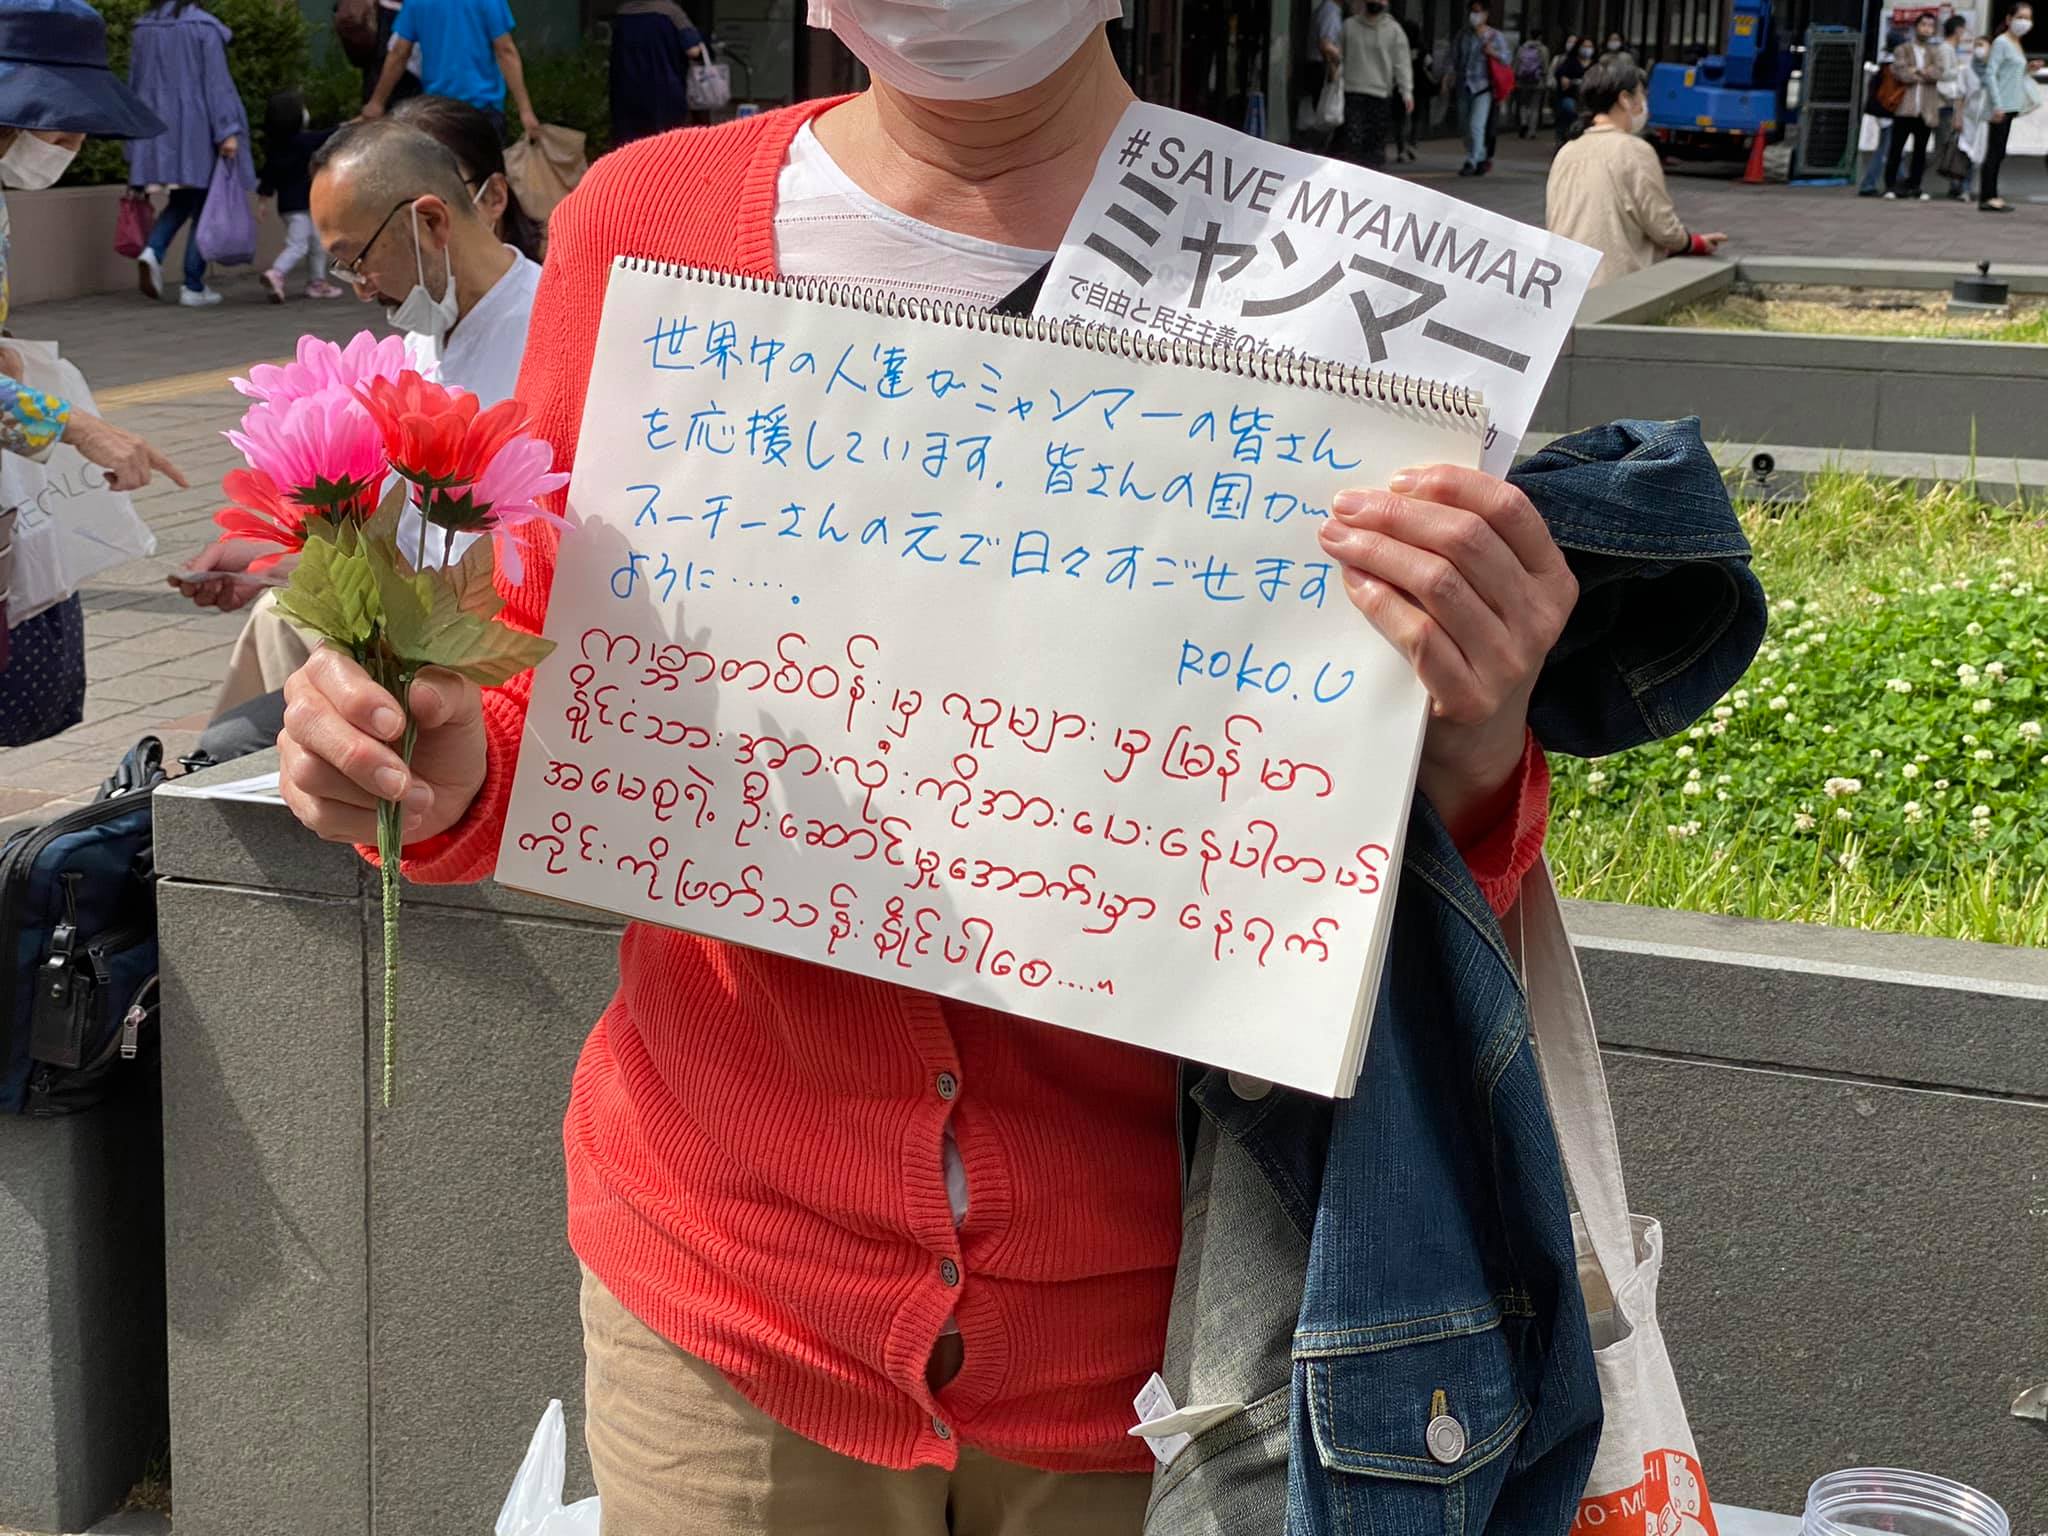 #SAVE MYANMAR
ミャンマー
で自由と民主主義のために
世界中の人達がミャンマーの皆さん
を応援しています。皆さんの国が
スーチーさんの元で日々すごせます
ように……。
ROKO.U
ကမ္ဘာတစ်ဝန်းမှ လူများမှ မြန်မာ
နိုင်ငံသားအားလုံးကိုအားပေးနေပါတယ်
အမေစုရဲ့ ဦးဆောင်မှုအောက်မှာ နေ့ရက်
တိုင်းကိုဖြတ်သန်းနိုင်ပါစေ....။